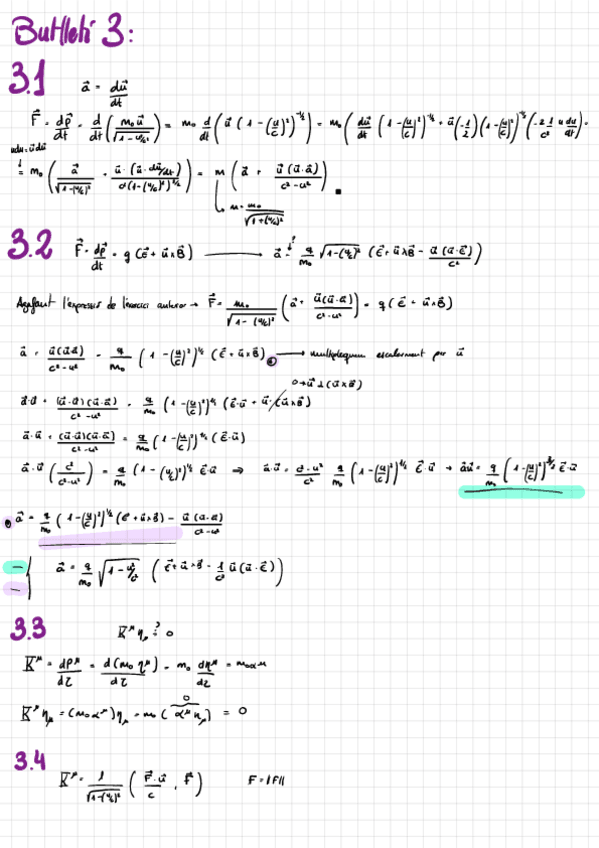 Butlletí 3:
3.1 a⃗ = du⃗/dt
F⃗ = dp⃗/dt = d/dt (m₀u⃗/√(1-u²/c²)) = m₀ d/dt (u⃗ (1-(u/c)²)^(-1/2)) = m₀ (du⃗/dt (1-(u/c)²)^(-1/2) + u⃗(-1/2)(1-(u/c)²)^(-3/2)(-2 1/c² u du/dt) =
udu = u⃗du⃗
↓
= m₀ (a⃗/√(1-(u/c)²) + u⃗·(u⃗·du⃗/dt)/c²(1-(u/c)²)^(3/2)) = m (a⃗ + u⃗(u⃗·a⃗)/(c²-u²)) ■
↳ m = m₀/√(1+(u/c)²)
3.2 F⃗ = dp⃗/dt = q(E⃗+u⃗×B⃗) ⟶ a⃗ =? q/m₀ √(1-(u/c)²) (E⃗+u⃗×B⃗ - u⃗(u⃗·E⃗)/c²)
Agafant l'expressió de l'exercici anterior → F⃗ = m₀/√(1-(u/c)²) (a⃗ + u⃗(u⃗·a⃗)/(c²-u²)) = q(E⃗+u⃗×B⃗)
a⃗ + u⃗(u⃗·a⃗)/(c²-u²) = q/m₀ (1-(u/c)²)^(1/2) (E⃗+u⃗×B⃗) ⟶ multipliquem escalarment per u⃗
0→u⃗⊥(u⃗×B⃗)
a⃗·u⃗ + (u⃗·u⃗)(u⃗·a⃗)/(c²-u²) = q/m₀ (1-(u/c)²)^(1/2) (E⃗·u⃗ + u⃗·(u⃗×B⃗))
a⃗·u⃗ + (u⃗·u⃗)(u⃗·a⃗)/(c²-u²) = q/m₀ (1-(u/c)²)^(1/2) (E⃗·u⃗)
a⃗·u⃗ (c²/(c²-u²)) = q/m₀ (1-(u/c)²)^(1/2) E⃗·u⃗ ⇒ a⃗·u⃗ = (c²-u²)/c² q/m₀ (1-(u/c)²)^(1/2) E⃗·u⃗ → a⃗u⃗ = q/m₀ (1-(u/c)²)^(3/2) E⃗·u⃗
a⃗ = q/m₀ (1-(u/c)²)^(1/2) (E⃗+u⃗×B⃗) - u⃗(u⃗·a⃗)/(c²-u²)
a⃗ = q/m₀ √(1-u²/c²) (E⃗+u⃗×B⃗ - 1/c² u⃗(u⃗·E⃗))
3.3 K^μ η_μ =? 0
K^μ = dP^μ/dτ = d(m₀ η^μ)/dτ = m₀ dη^μ/dτ = m₀α^μ
K^μ η_μ = (m₀α^μ)η_μ = m₀(α^μ η_μ) = 0
0
3.4 K^μ = 1/√(1-(u/c)²) (F⃗·u⃗/c, F⃗) F = ||F||